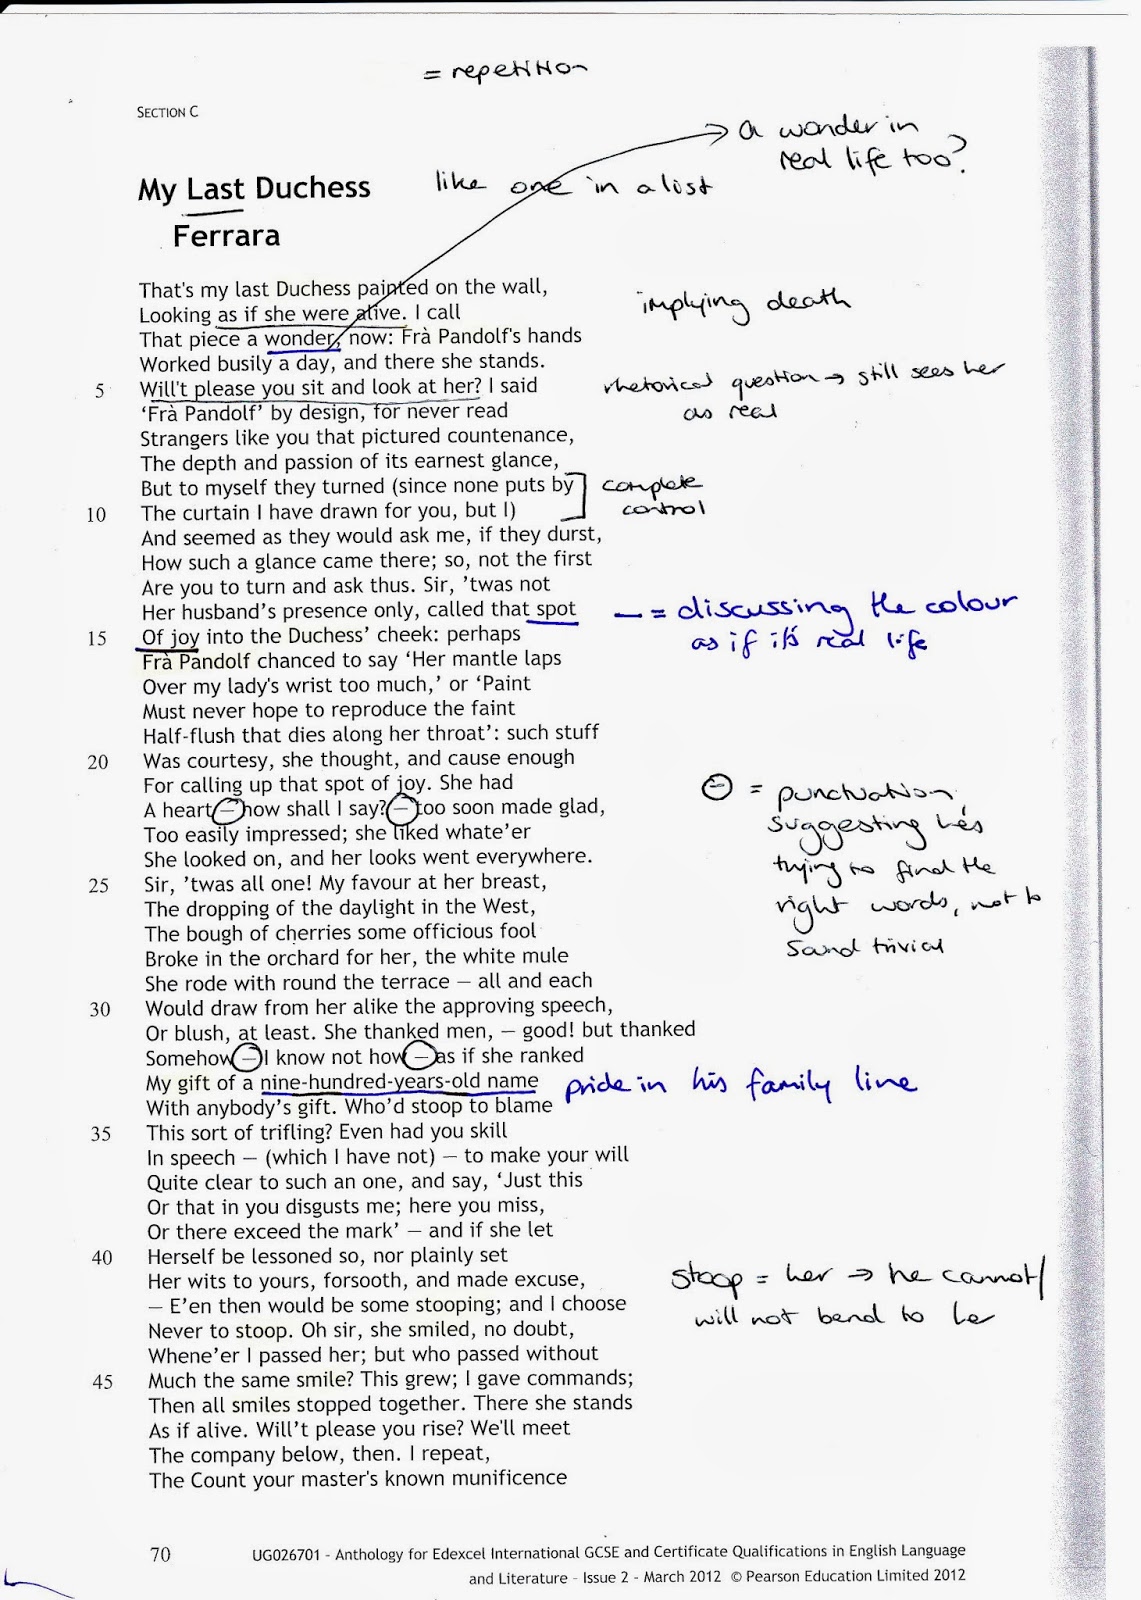 = repetition
SECTION C
a wonder in
real life too?
My Last Duchess
like one in a list
Ferrara
That's my last Duchess painted on the wall,
Looking as if she were alive. I call
implying death
That piece a wonder, now: Frà Pandolf's hands
Worked busily a day, and there she stands.
5 Will't please you sit and look at her? I said
rhetorical question → still sees her
as real
‘Frà Pandolf’ by design, for never read
Strangers like you that pictured countenance,
The depth and passion of its earnest glance,
But to myself they turned (since none puts by
complete
control
10 The curtain I have drawn for you, but I)
And seemed as they would ask me, if they durst,
How such a glance came there; so, not the first
Are you to turn and ask thus. Sir, ’twas not
Her husband’s presence only, called that spot
— = discussing the colour
as if it's real life
15 Of joy into the Duchess’ cheek: perhaps
Frà Pandolf chanced to say ‘Her mantle laps
Over my lady's wrist too much,’ or ‘Paint
Must never hope to reproduce the faint
Half-flush that dies along her throat’: such stuff
20 Was courtesy, she thought, and cause enough
For calling up that spot of joy. She had
A heart — how shall I say? — too soon made glad,
= punctuation,
suggesting he's
trying to find the
right words, not to
sound trivial
Too easily impressed; she liked whate’er
She looked on, and her looks went everywhere.
25 Sir, ’twas all one! My favour at her breast,
The dropping of the daylight in the West,
The bough of cherries some officious fool
Broke in the orchard for her, the white mule
She rode with round the terrace — all and each
30 Would draw from her alike the approving speech,
Or blush, at least. She thanked men, — good! but thanked
Somehow — I know not how — as if she ranked
My gift of a nine-hundred-years-old name
pride in his family line
With anybody’s gift. Who’d stoop to blame
35 This sort of trifling? Even had you skill
In speech — (which I have not) — to make your will
Quite clear to such an one, and say, ‘Just this
Or that in you disgusts me; here you miss,
Or there exceed the mark’ — and if she let
40 Herself be lessoned so, nor plainly set
Her wits to yours, forsooth, and made excuse,
stoop = her → he cannot/
will not bend to her
— E’en then would be some stooping; and I choose
Never to stoop. Oh sir, she smiled, no doubt,
Whene’er I passed her; but who passed without
45 Much the same smile? This grew; I gave commands;
Then all smiles stopped together. There she stands
As if alive. Will’t please you rise? We'll meet
The company below, then. I repeat,
The Count your master's known munificence
70 UG026701 - Anthology for Edexcel International GCSE and Certificate Qualifications in English Language
and Literature - Issue 2 - March 2012 © Pearson Education Limited 2012